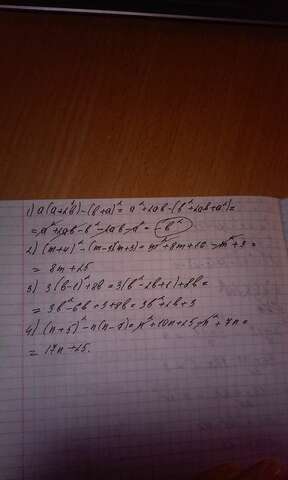 1) a(a+2b)-(b+a)²= a²+2ab-(b²+2ab+a²)=
=a²+2ab-b²-2ab-a²= -b²
2) (m+4)²-(m-3)(m+3)=m²+8m+16-m²+9=
= 8m+25
3) 3(b-1)²+8b=3(b²-2b+1)+8b=
= 3b²-6b+3+8b=3b²+2b+3
4) (n+5)²-n(n-7)=n²+10n+25-n²+7n=
= 17n+25.